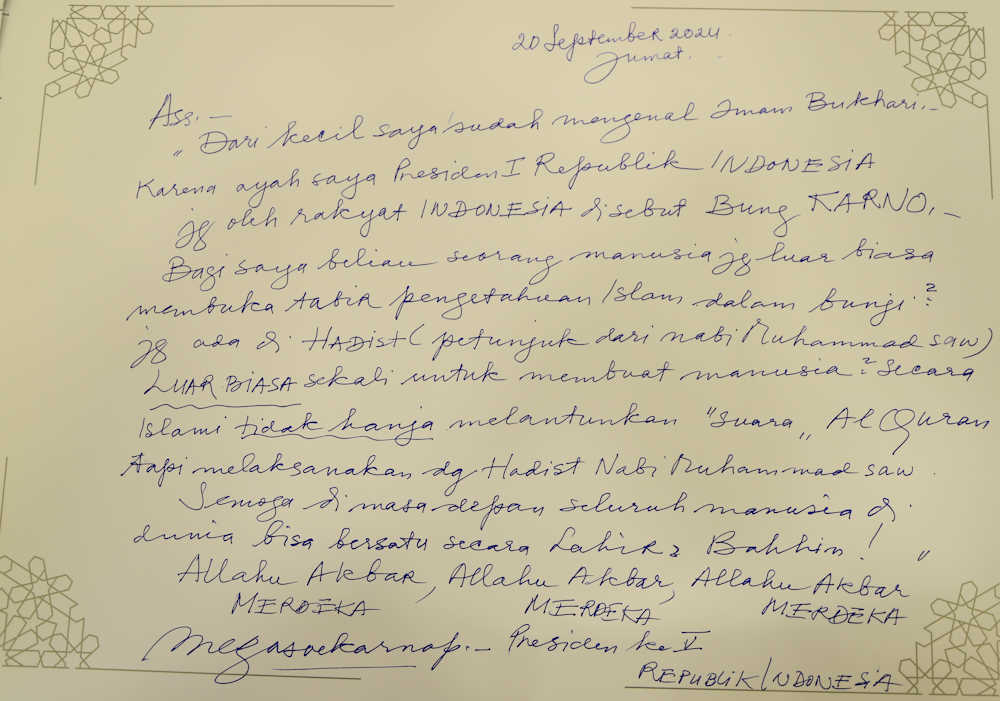 20 September 2024.
Jumat.
Ass. —
„ Dari kecil saya sudah mengenal Imam Bukhari. –
Karena ayah saya Presiden I Republik INDONESIA
jg oleh rakyat INDONESIA disebut Bung KARNO. –
Bagi saya beliau seorang manusia jg luar biasa
membuka tabir pengetahuan Islam dalam bungi ?
jg ada di HADIST ( petunjuk dari nabi Muhammad saw)
LUAR BIASA sekali untuk membuat manusia ² secara
Islami tidak hanja melantunkan "suara„ Al Quran
tapi melaksanakan dg Hadist Nabi Muhammad saw.
Semoga di masa depan seluruh manusia di
dunia bisa bersatu secara Lahir 2 Bathin ! "
Allahu Akbar, Allahu Akbar, Allahu Akbar
MERDEKA MERDEKA MERDEKA
Megasoekarnop. – Presiden ke V
REPUBLIK INDONESIA